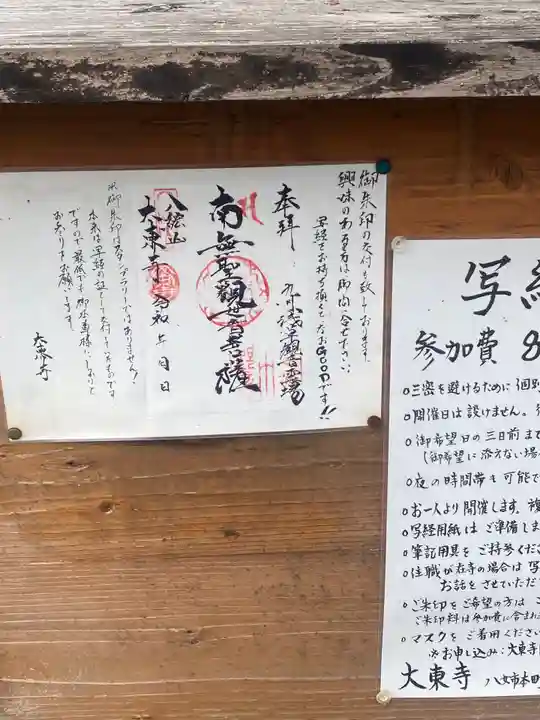 御朱印の交付も致しております。
興味のある方は御問い合せ下さい。
写経をお持ち頂くとなおGOODです!!
奉拝
南無聖観世音菩薩
八紘山
大東寺
令和 年 月 日
※御朱印はスタンプラリーではありません!
本来は写経の証として交付するものです
ですので最低でも御本尊様にしっかりと
お参りをお願いします。
大東寺
写経
参加費 8
○三密を避けるために1個別
○開催日は設けません。
○御希望日の三日前まで
(御希望に添えない場合
○夜の時間帯も可能で
○お一人より開催します。複
○写経用紙はご準備しま
○筆記用具をご持参くださ
○住職が在寺の場合は写
お話をさせていただ
○ご朱印をご希望の方は
ご朱印料は参加費に含まれ
○マスクをご着用ください
※お申し込み:大東寺
大東寺 八女市本町